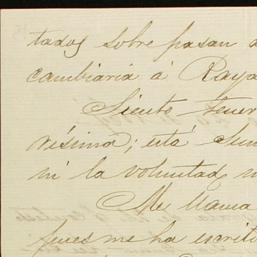 tados sobre pasan a
cambiaria á Raya
Siento tener
rísima; está
ni la voluntad
Me llama
pues me ha escrito